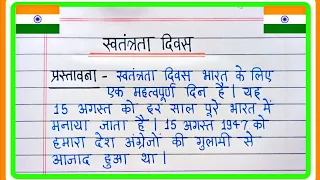 स्वतंत्रता दिवस
प्रस्तावना - स्वतंत्रता दिवस भारत के लिए
एक महत्वपूर्ण दिन है। यह
15 अगस्त को हर साल पूरे भारत में
मनाया जाता है। 15 अगस्त 1947 को
हमारा देश अंग्रेजों की गुलामी से
आजाद हुआ था।